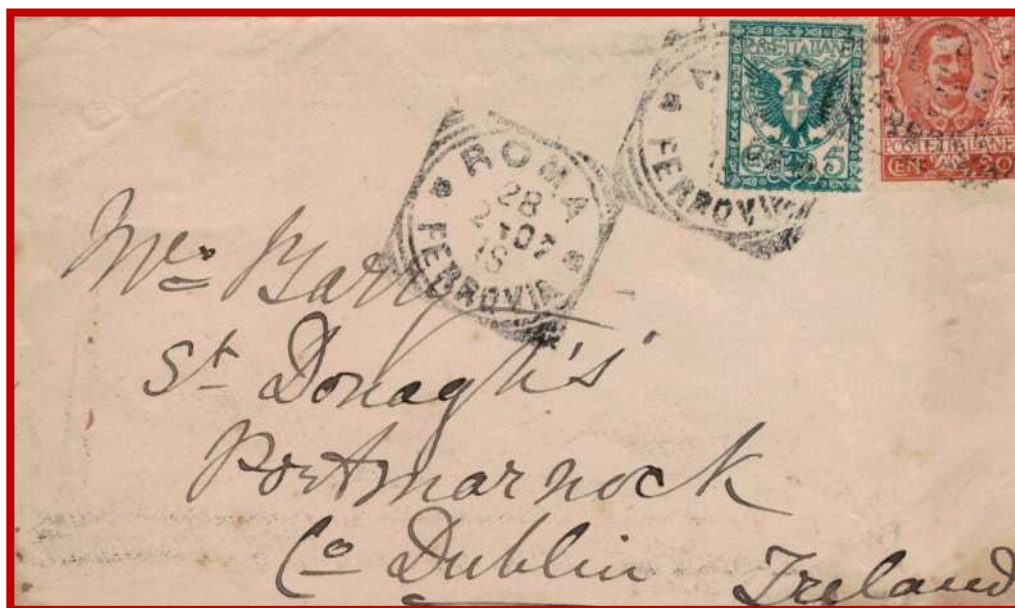 POSTE ITALIANE
CENT. 5
POSTE ITALIANE
CENT. 20
FERROVIA
ROMA
28
2 • 07
18
FERROVIA
Mrs Barry
St Donagh's
Portmarnock
Co Dublin
Ireland